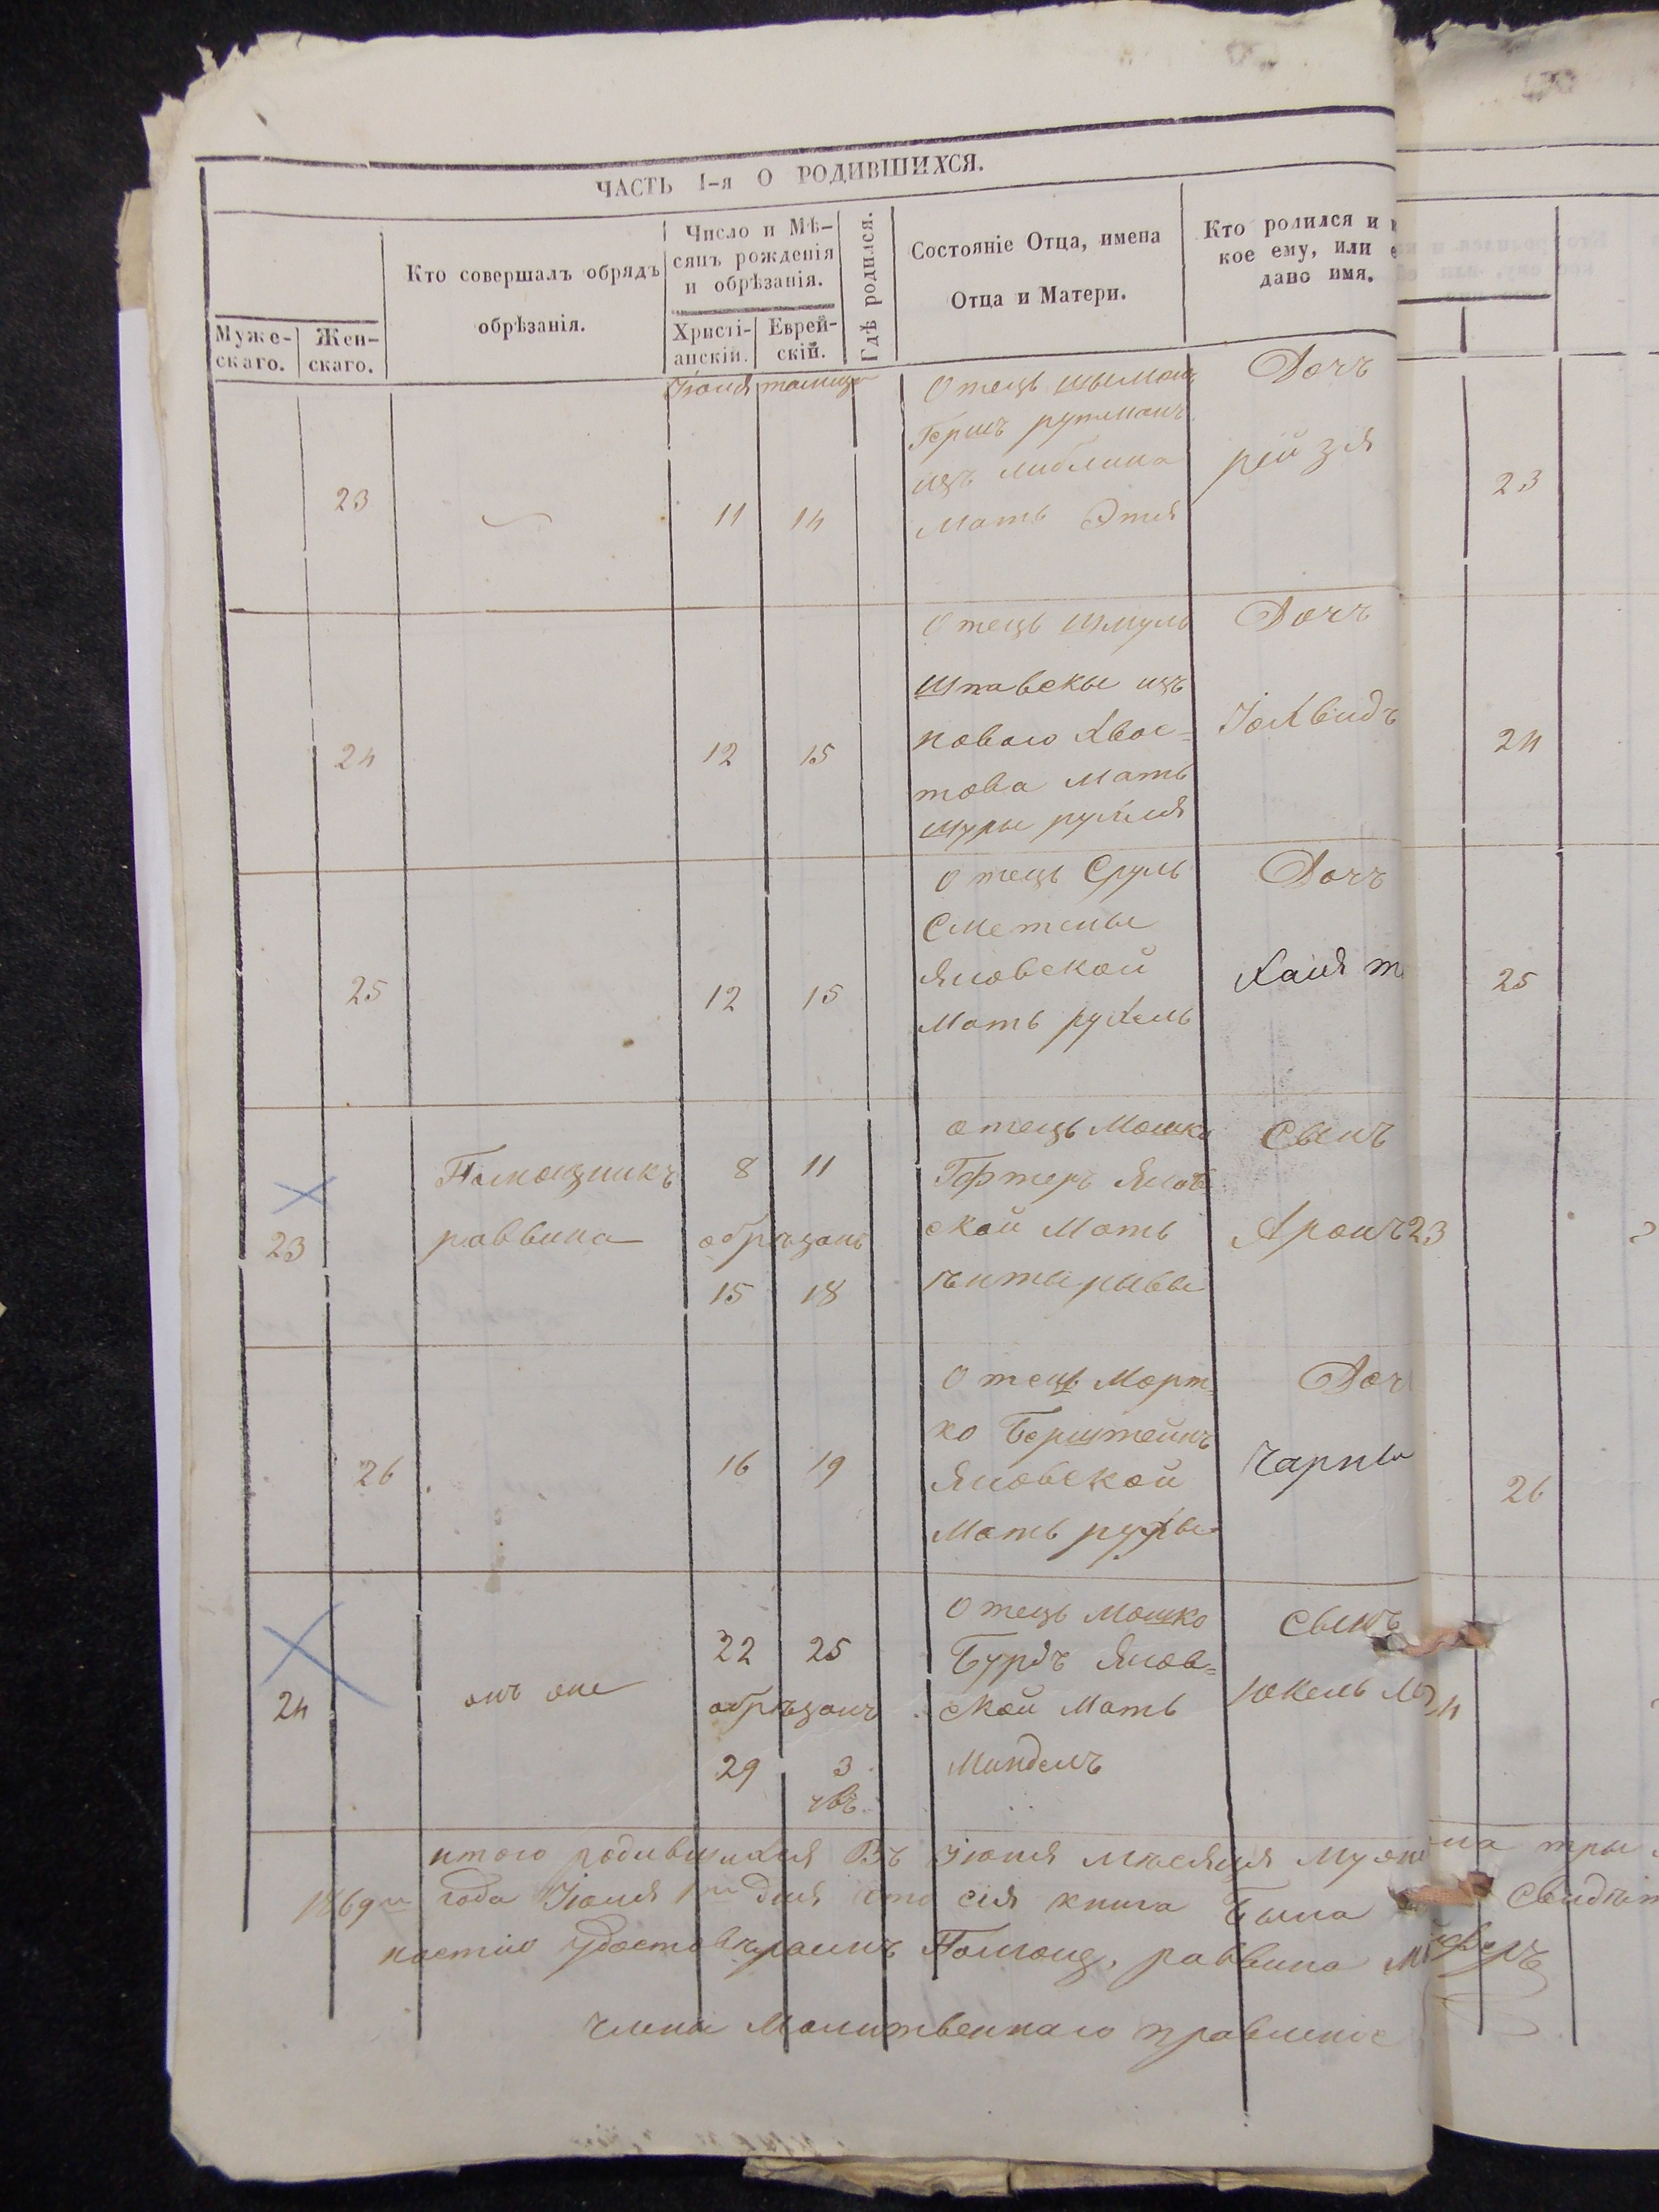 ЧАСТЬ I-я О РОДИВШИХСЯ.
Муже-скаго.
Жен-скаго.
Кто совершалъ обрядъ
обрѣзанія.
Число и Мѣ-
сяцъ рожденія
и обрѣзанія.
Христі-
анскій.
Еврей-
скій.
Гдѣ родился.
Состояніе Отца, имена
Отца и Матери.
Кто родился и
кое ему, или
дано имя.
Іюня тамуза
23
11 14
Отецъ Шымонъ
Гершъ рутманъ
изъ Любlина
Мать Этля
Дочъ
рейзя
23
24
12 15
Отецъ Шмуль
Шпавскы изъ
новаго Хвос=
това Мать
Шуры рухля
Дочъ
Іохвидъ
24
25
12 15
Отецъ Сруль
Сметаны
Яновской
Мать рухель
Дочъ
Хаия
25
23
Помощникъ
раввина
8 11
обрѣзанъ
15 18
отецъ Мошко
Яновской Мать
рывы
Сынъ
Аронъ
23
26
16 19
Отецъ Морт=
ко Берштейнъ
Яновской
Мать рухы
Доч
Чарны
26
24
онъ же
22 25
обрѣзанъ
29 3
Отецъ Мошко
Бурдъ Янов=
ской Мать
Миндель
Сынъ
Юкель
итого родившихся Въ Іюня мѣсяця
1869 года Іюля 1 дня что сія книга Была
ностію Помощ. раввина
члены Молитвеннаго правленіе